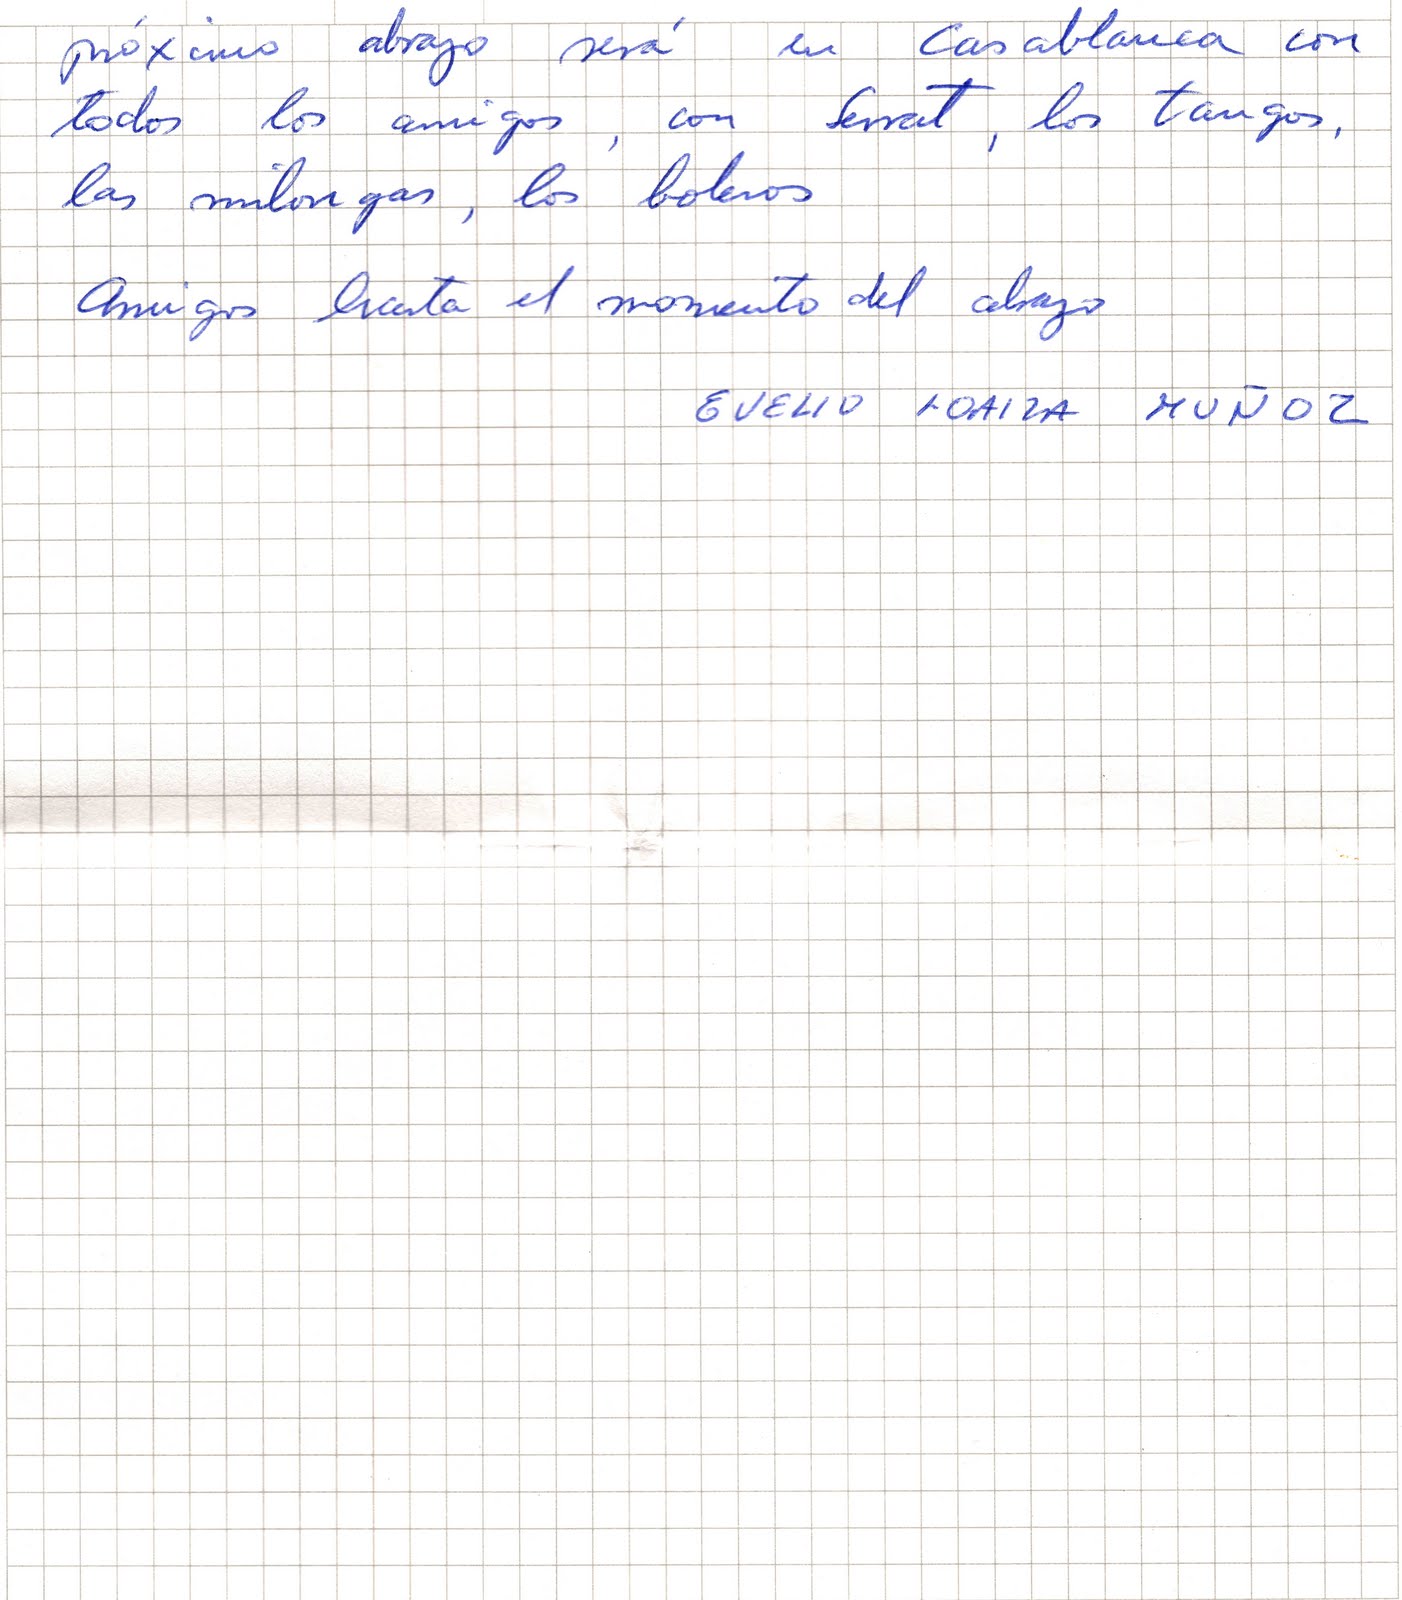 próximo abrazo será en Casablanca con
todos los amigos, con Serrat, los tangos,
las milongas, los boleros
Amigos hasta el momento del abrazo
EVELIO LOAIZA MUÑOZ